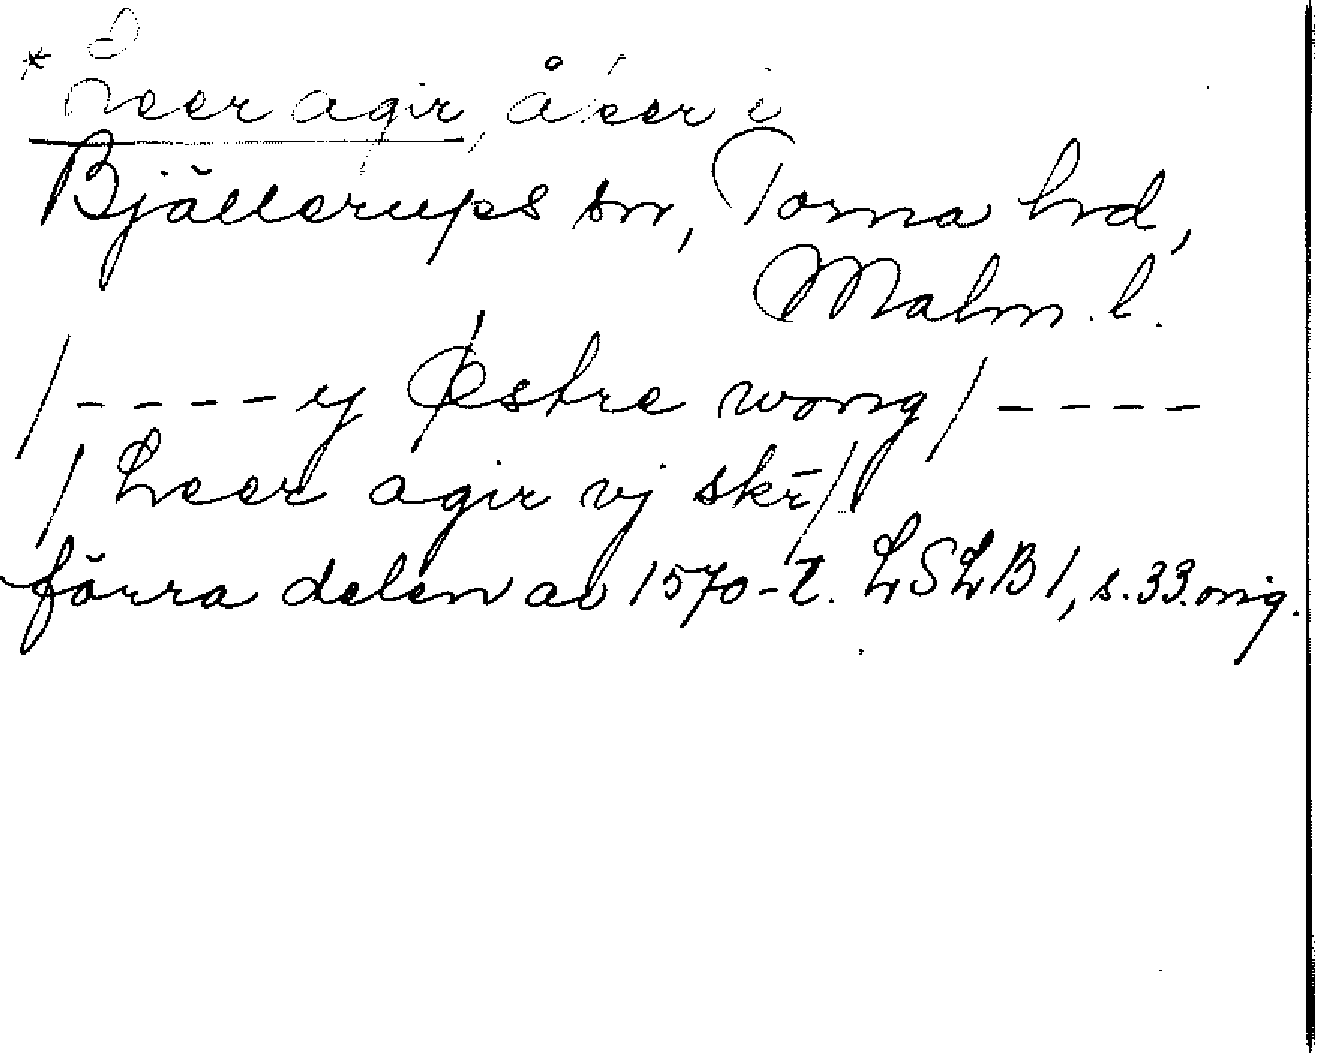 * Leer agir, åker i
Bjällerups sn, Torna hrd,
Malm. l.
/---- y Østre wong/----
/Leer agir vj skr̄/
förra delen av 1570-t. LSLB 1, s. 33. orig.